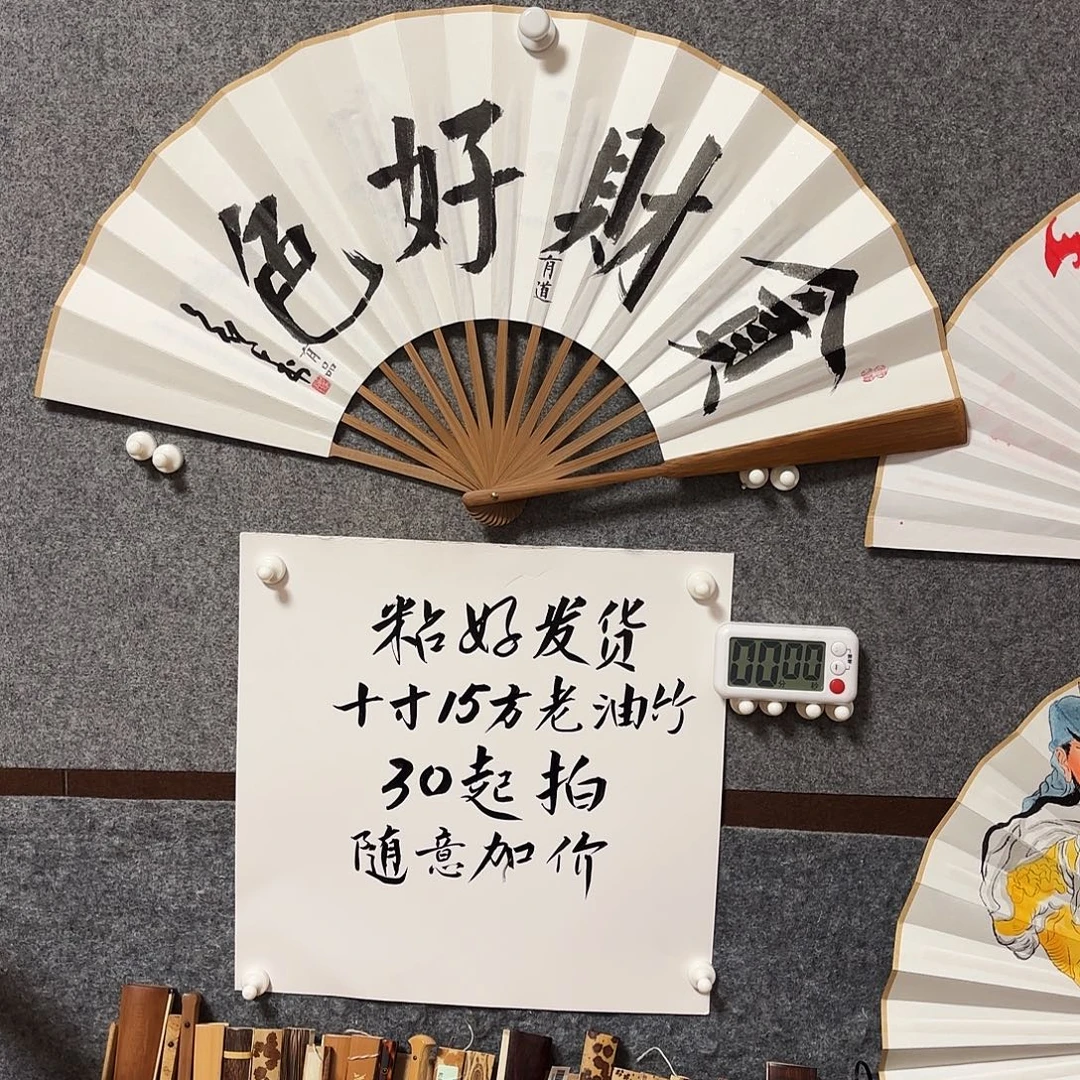 貪財好色
有道
有品
粘好发货
十寸15方老油竹
30起拍
随意加价
00:00